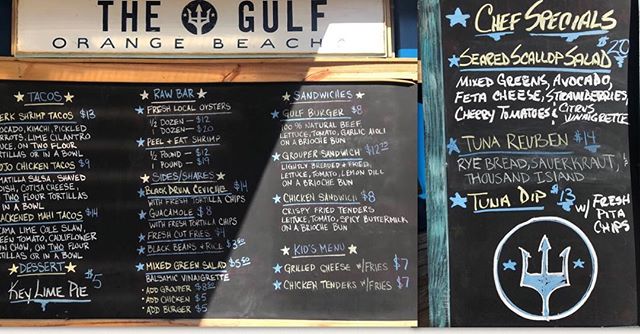 THE GULF
ORANGE BEACH
TACOS
JERK SHRIMP TACOS $13
AVOCADO, KIMCHI, PICKLED
CARROTS, LIME CILANTRO
SAUCE, ON TWO FLOUR
TORTILLAS OR IN A BOWL
MOJO CHICKEN TACOS $9
TOMATILLA SALSA, SHAVED
RADISH, COTIJA CHEESE,
TWO FLOUR TORTILLAS
IN A BOWL
BLACKENED MAHI TACOS $14
LIME COLE SLAW,
GREEN TOMATO, CAULIFLOWER
CHOW CHOW, ON TWO FLOUR
TORTILLAS OR IN A BOWL
DESSERT
KEY LIME PIE $5
RAW BAR
FRESH LOCAL OYSTERS
1/2 DOZEN - $12
1 DOZEN - $20
PEEL + EAT SHRIMP
1/2 POUND - $12
1 POUND - $19
SIDES/SHARES
BLACK DRUM CEVICHE $14
WITH FRESH TORTILLA CHIPS
GUACAMOLE $8
WITH FRESH TORTILLA CHIPS
FRESH CUT FRIES $4
BLACK BEANS + RICE $3.50
MIXED GREEN SALAD $5.50
BALSAMIC VINAIGRETTE
ADD GROUPER $8
ADD CHICKEN $5
ADD BURGER $5
SANDWICHES
GULF BURGER $8
100% NATURAL BEEF
LETTUCE, TOMATO, GARLIC AIOLI
ON A BRIOCHE BUN
GROUPER SANDWICH $12
LIGHTLY BREADED + FRIED
LETTUCE, TOMATO, LEMON DILL
ON A BRIOCHE BUN
CHICKEN SANDWICH $8
CRISPY FRIED TENDERS
LETTUCE, TOMATO, SPICY BUTTERMILK
ON A BRIOCHE BUN
KID'S MENU
GRILLED CHEESE W/FRIES $7
CHICKEN TENDERS W/FRIES $7
CHEF SPECIALS
SEARED SCALLOP SALAD $20
MIXED GREENS, AVOCADO,
FETA CHEESE, STRAWBERRIES,
CHERRY TOMATOES & CITRUS
VINAIGRETTE
TUNA REUBEN $14
RYE BREAD, SAUERKRAUT,
THOUSAND ISLAND
TUNA DIP $13
W/ FRESH
PITA
CHIPS